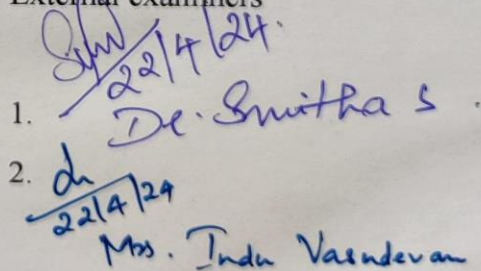 External examiners
22/4/24.
1.
Dr. Smitha S
2.
22/4/24
Mrs. Indu Vasudevan